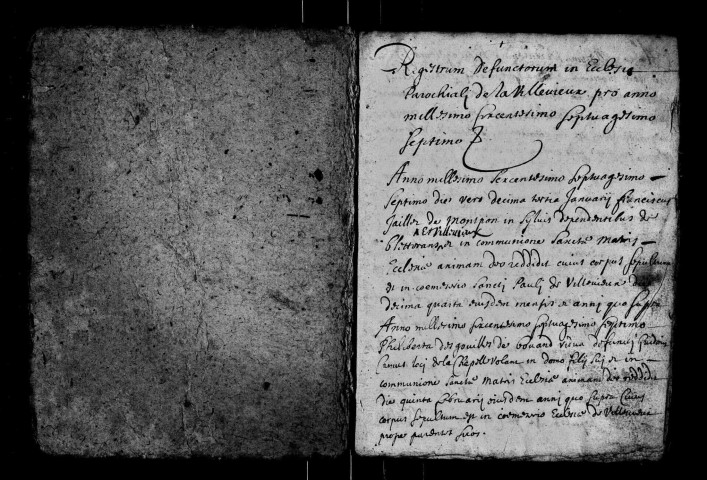 Registrum defunctorum in Eclesia
Parochiali de la Villevieux pro anno
millesimo sexcentesimo septuagesimo
septimo
Anno millesimo sexcentesimo septuagesimo
septimo die vero decima tertia Januarij franciscus
Jaillet de Montpon in sylvis dependentibus de
et Villevieux
bletterans in communione sancte matris
Eclesie animam deo reddidit cuius corpus sepultum
est in coemeterio sancti Pauli de Villevieux die
decima quarta eiusdem mensis et anni quo supra
Anno millesimo sexcentesimo septuagesimo septimo
Philiberta desgouilles de vouand vidua defuncti
loci de la Chapelle Volant in domo filij sui et in
communione sancte matris Eclesie animam deo reddidit
die quinta februarij eiusdem anni quo supra cuius
corpus sepultum est in coemeterio Eclesie de Villevieux
prope parentes suos.